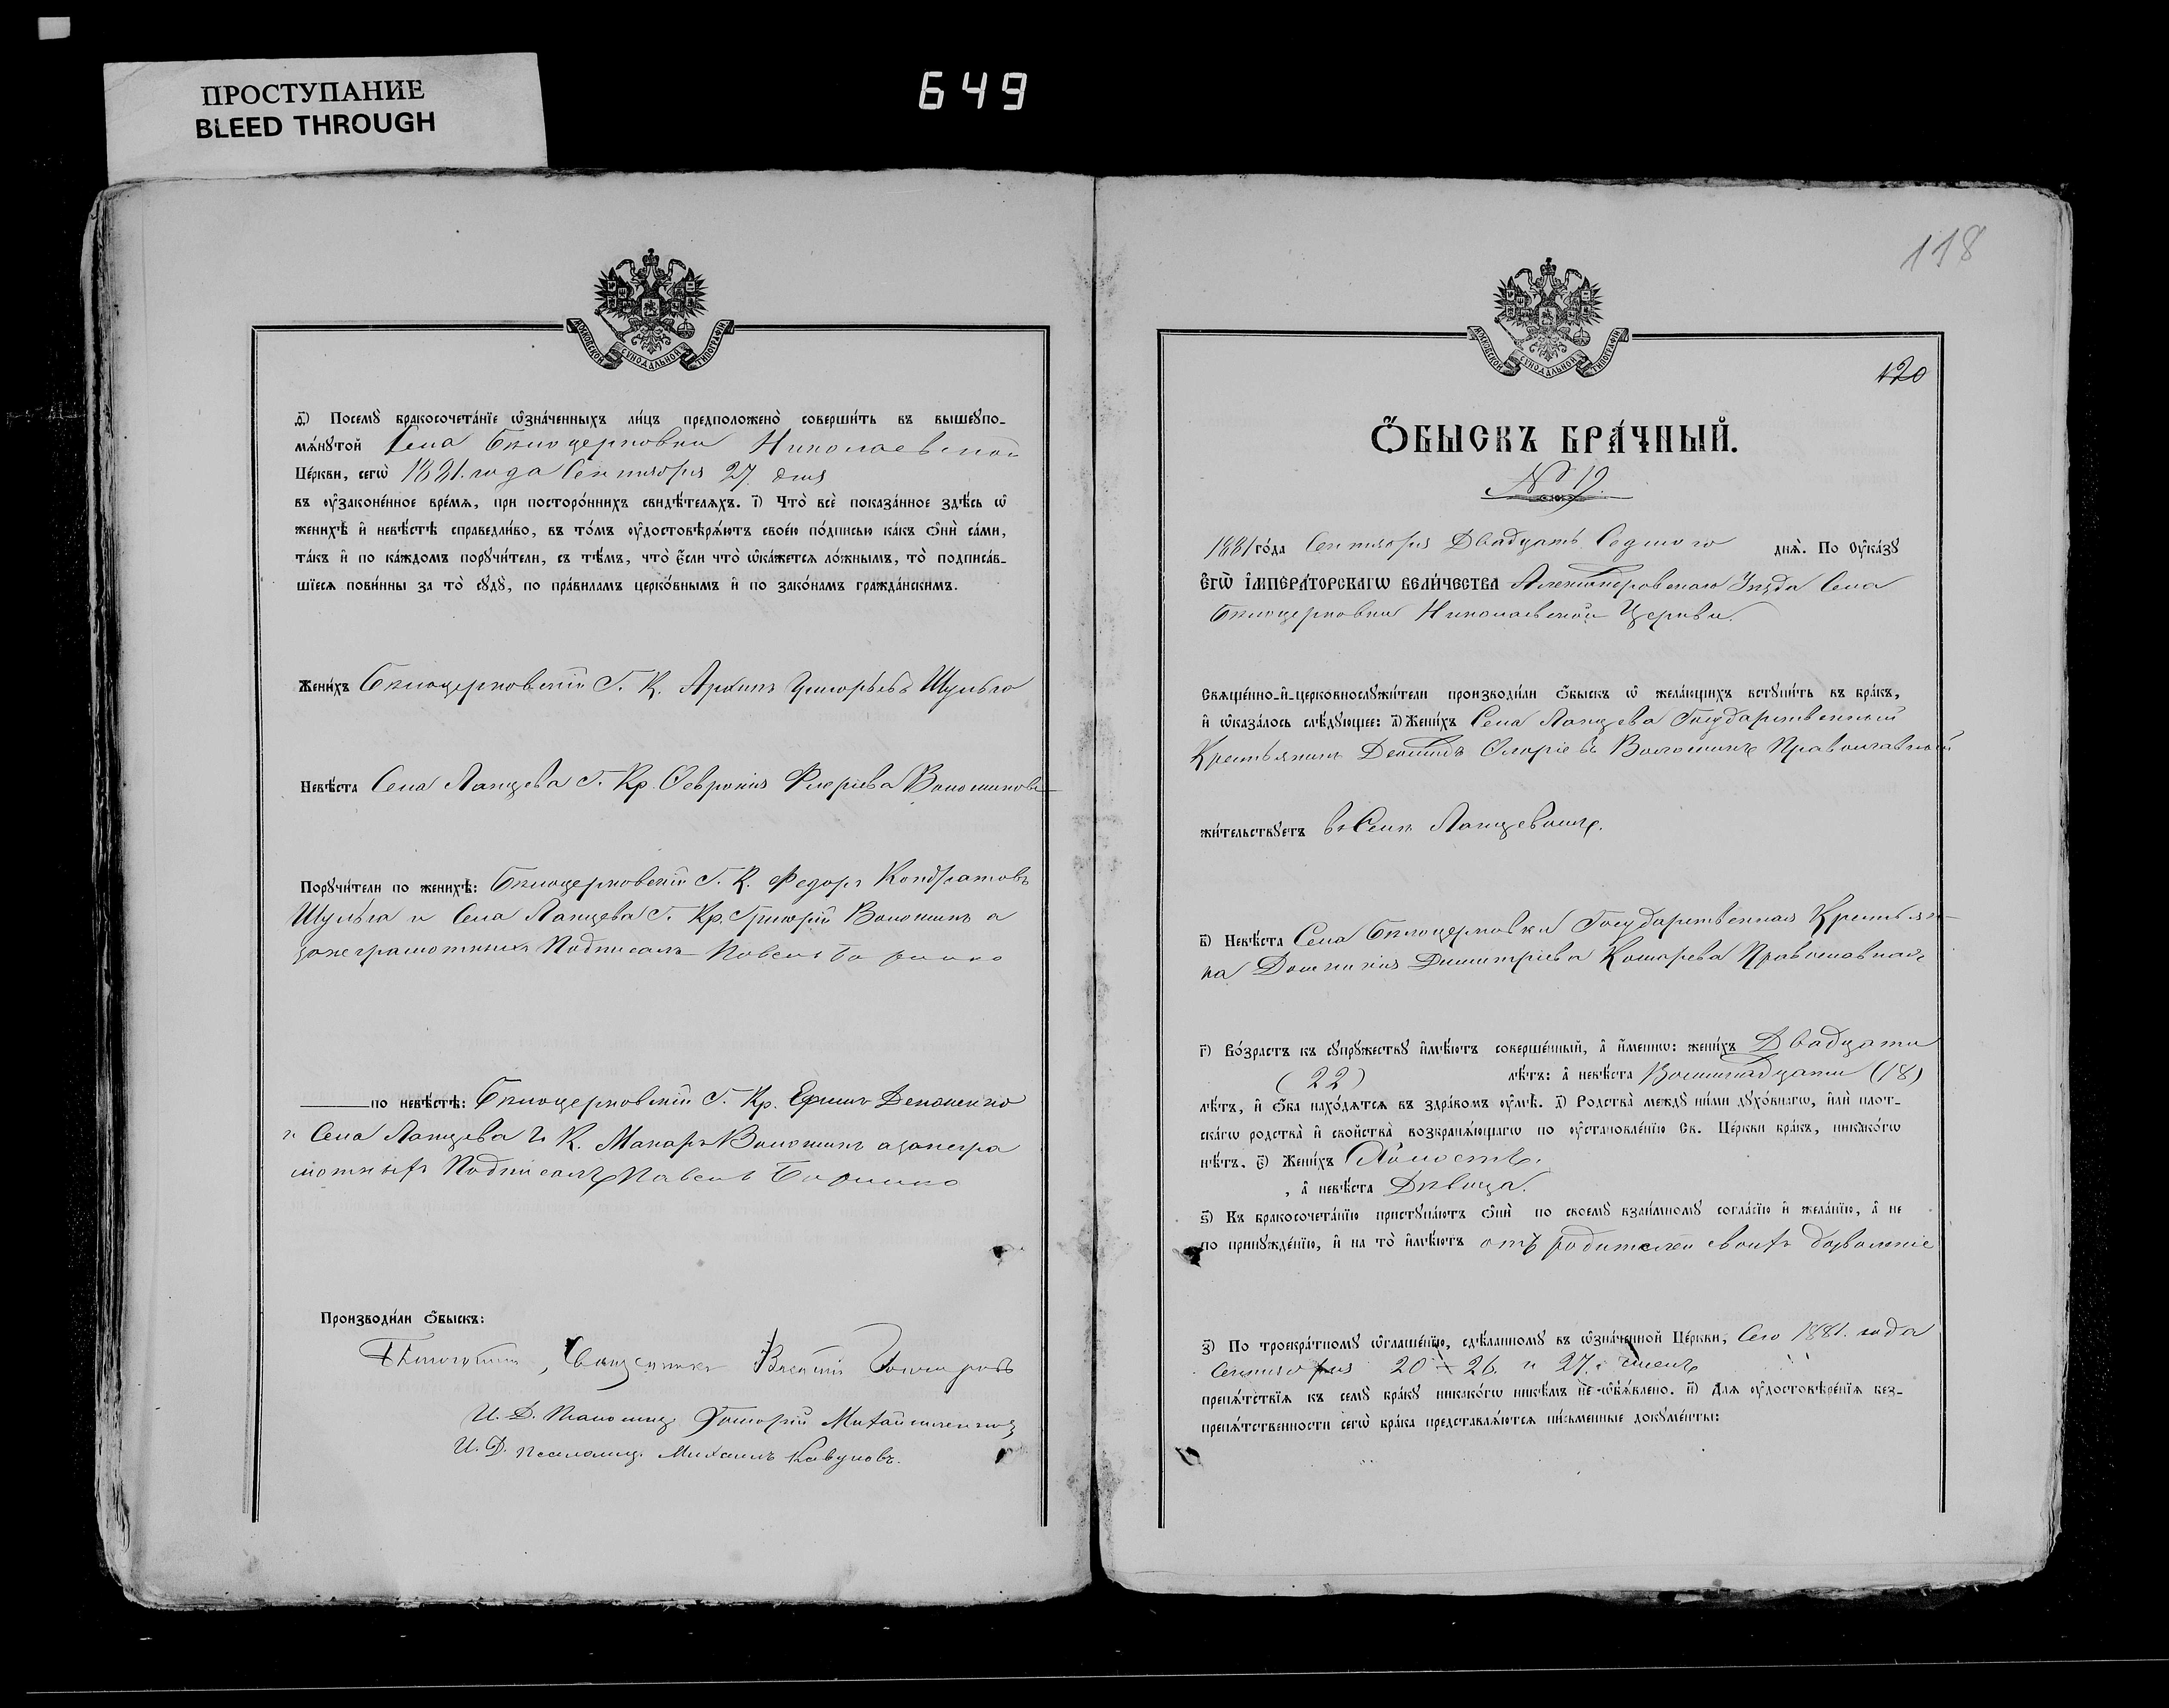 ПРОСТУПАНИЕ
BLEED THROUGH
649
МОСКОВСКОЙ СѴНОДАЛЬНОЙ ТИПОГРАФІИ
д҃) Посемꙋ̀ бракосочета́нїе ѡ҆зна́ченныхъ ли́цъ предположено̀ соверши́ть въ вышеꙋпо-
мѧ́нꙋтой Села Белоцерковки Николаевской
Це́ркви, сегѡ̀ 1881. года Сентября 27. дня
въ ᲂу҆зако́ненное вре́мѧ, при посторо́ннихъ свидѣ́телѧхъ. і҃) Что̀ всѐ показа́нное здѣ́сь ѡ҆
женихѣ̀ и҆ невѣ́стѣ справедли́во, въ то́мъ ᲂу҆достовѣрѧ́ютъ свое́ю по́дписью ка́къ ѻ҆нѝ са́ми,
та́къ и҆ по ка́ждомъ порꙋчи́тели, съ тѣ́мъ, что̀ є҆́сли что̀ ѡ҆ка́жетсѧ ло́жнымъ, то̀ подписа́в-
шїесѧ пови́нны за то̀ сꙋдꙋ̀, по пра́виламъ церко́внымъ и҆ по зако́намъ гражда́нскимъ.
Жени́хъ Белоцерковскій Г. К. Архипъ Григорьевъ Шульга
Невѣ́ста Села Лапцева Г. Кр. Февронія Флоріева Волошинова
Порꙋчи́тели по женихѣ̀: Белоцерковскій Г. К. Федоръ Кондратовъ
Шульга и Села Лапцева Г. Кр. Григорій Волошинъ а
за неграмотныхъ Подписалъ Павелъ
по невѣ́стѣ: Белоцерковскій Г. Кр. Ефимъ
и Села Лапцева Г. К. Макаръ Волошинъ а за негра
мотныхъ Подписалъ Павелъ
Произво́дили ѻ҆́быскъ:
Священникъ
И. Д. Псаломщ. Григорій
И. Д. Псаломщ. Михаилъ Кавуновъ.
118
МОСКОВСКОЙ СѴНОДАЛЬНОЙ ТИПОГРАФІИ
120
Ѻ҆́БЫСКЪ БРА́ЧНЫЙ.
№ 19.
1881 го́да Сентября Двадцать Седмого днѧ̀. По ᲂу҆ка́зꙋ
Є҆ГѠ̀ І҆МПЕРА́ТОРСКАГѠ ВЕЛИ́ЧЕСТВА Александровскаго Уезда Села
Белоцерковки Николаевской Церкви.
Свѧще́нно-и҆-церковнослꙋжи́тели производи́ли ѻ҆́быскъ ѡ҆ жела́ющихъ встꙋпи́ть въ бра́къ,
и҆ ѡ҆каза́лось слѣ́дꙋющее: а҃) Жени́хъ Села Лапцева Государственный
Крестьянинъ Деомидъ Флоріевъ Волошинъ Православный
жи́тельствꙋетъ въ Селе
в҃) Невѣ́ста Села Белоцерковки Государственная Крестьян-
ка Домникия Димитріева Комарева Православная
г҃) Во́зрастъ къ сꙋпрꙋжествꙋ и҆мѣ́ютъ соверше́нный, а҆ и҆́менно: жени́хъ Двадцати
(22) лѣ́тъ: а҆ невѣ́ста Восемнадцати (18)
лѣ́тъ, и҆ ѻ҆́ба нахо́дѧтсѧ въ здра́вомъ ᲂу҆мѣ̀. д҃) Родства̀ междꙋ ни́ми дꙋхо́внагѡ, и҆лѝ плот-
ска́гѡ родства̀ и҆ свойства̀ возбранѧ́ющагѡ по ᲂу҆становле́нїю Св. Це́ркви бра́къ, никако́гѡ
нѣ́тъ. є҃) Жени́хъ Холостъ.
, а҆ невѣ́ста Дѣвица.
ѕ҃) Къ бракосочета́нїю пристꙋпа́ютъ ѻ҆нѝ по своемꙋ̀ взаи́мномꙋ согла́сїю и҆ жела́нїю, а҆ не
по принꙋжде́нїю, и҆ на то̀ и҆мѣ́ютъ отъ родителей своихъ дозволеніе
з҃) По троекра́тномꙋ ѡ҆глаше́нїю, сдѣ́ланномꙋ въ ѡ҆зна́ченной Це́ркви, Сего 1881. года
Сентября 20 26. и 27. чиселъ
препѧ́тствїѧ къ семꙋ̀ бра́кꙋ никако́гѡ никѣ́мъ не ѡ҆б̾ѧ́влено. и҃) Для ᲂу҆достовѣре́нїѧ без-
препѧ́тственности сегѡ̀ бра́ка представлѧ́ютсѧ пи́сьменные докꙋме́нты: